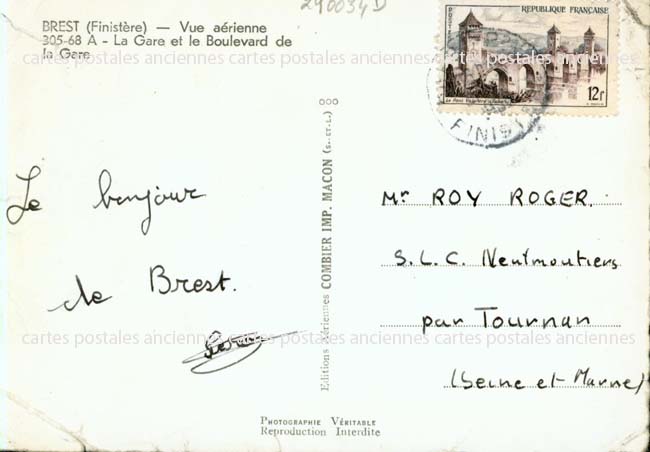 240034D
BREST (Finistère) — Vue aérienne
305-68 A - La Gare et le Boulevard de
la Gare
cartes postales anciennes cartes postales anciennes cartes postales anciennes
POSTES
RÉPUBLIQUE FRANÇAISE
12f
FINIST
Le bonjour
de Brest.
Editions Aériennes COMBIER IMP. MACON (S.-ET-L.)
Mr ROY ROGER.
S.L.C. Neutmoutiers
par Tournan
(Seine et-Marne)
cartes postales anciennes cartes postales anciennes cartes postales anciennes
PHOTOGRAPHIE VÉRITABLE
Reproduction Interdite